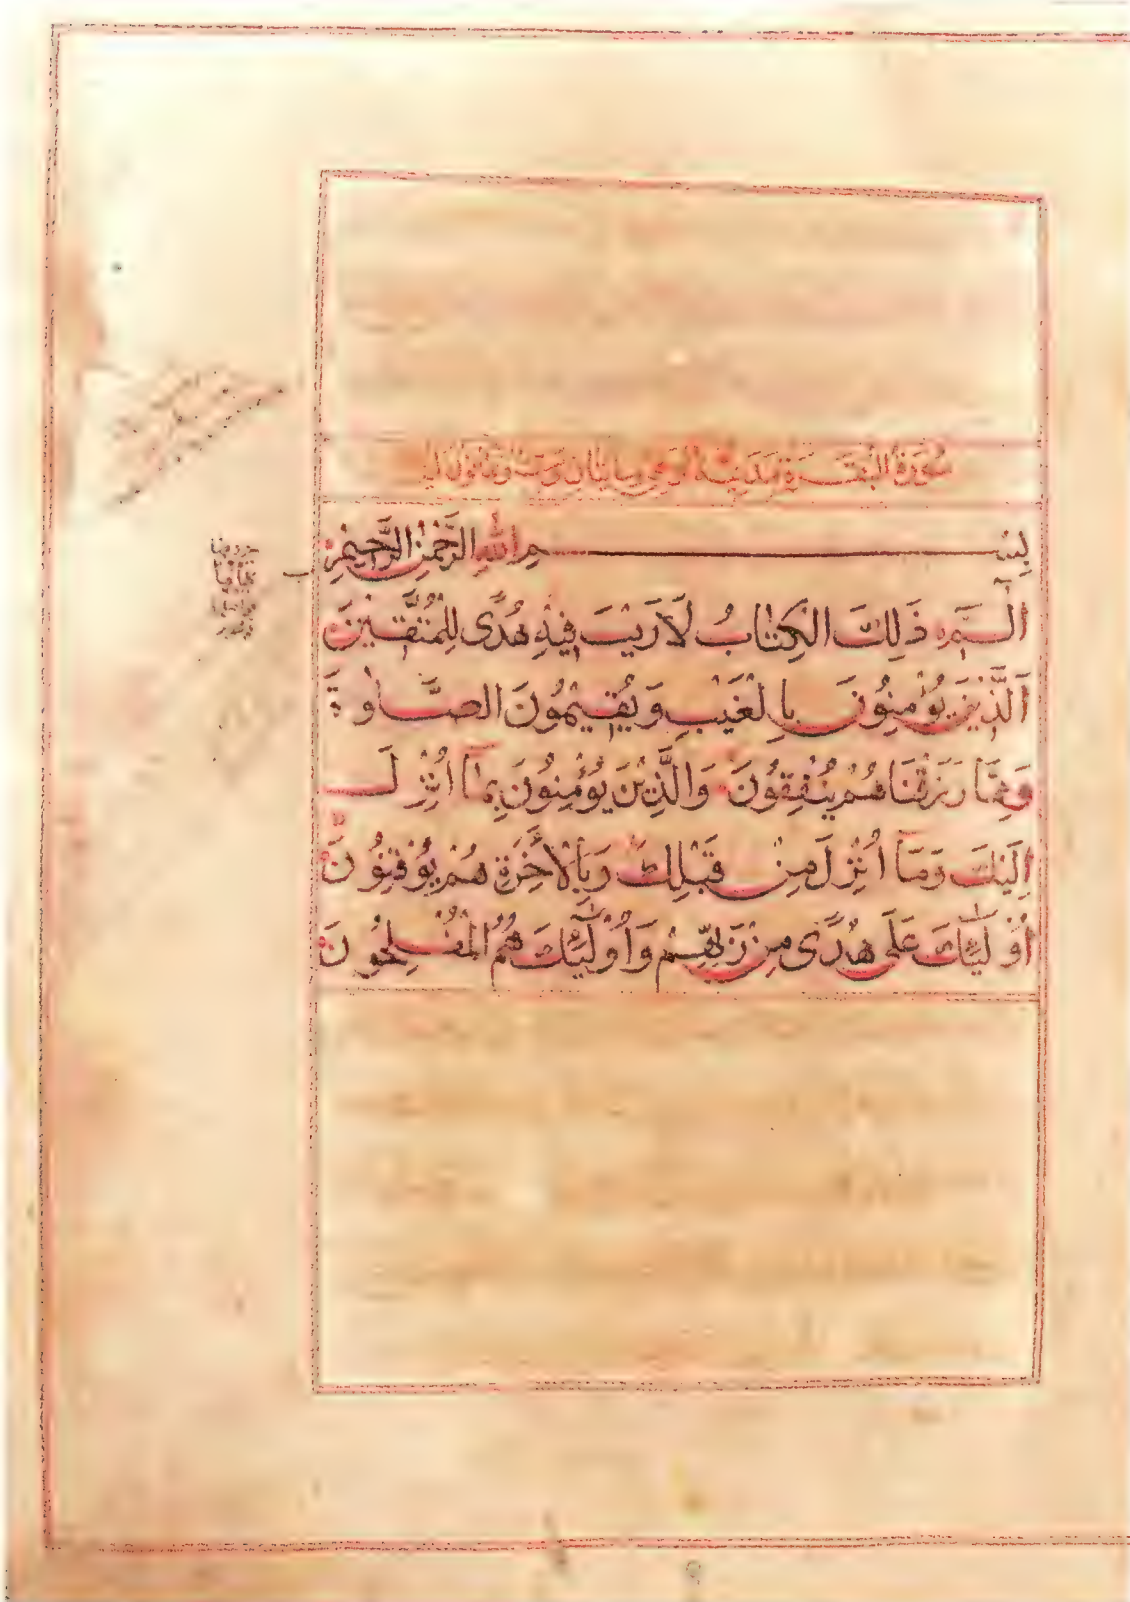 سورة البقرة مدنية وهي مايتان وست وثمنون اية
بِسْمِ اللهِ الرَّحْمٰنِ الرَّحِيْمِ
الٓمّٓ ذٰلِكَ الْكِتٰابُ لَا رَيْبَ فِيْهِ هُدًى لِلْمُتَّقِيْنَ
اَلَّذِيْنَ يُؤْمِنُوْنَ بِالْغَيْبِ وَيُقِيْمُوْنَ الصَّلٰوةَ
وَمِمَّا رَزَقْنَاهُمْ يُنْفِقُوْنَ وَالَّذِيْنَ يُؤْمِنُوْنَ بِمَآ اُنْزِلَ
اِلَيْكَ وَمَآ اُنْزِلَ مِنْ قَبْلِكَ وَبِالْاٰخِرَةِ هُمْ يُوْقِنُوْنَ
اُوْلٰٓئِكَ عَلٰى هُدًى مِنْ رَبِّهِمْ وَاُوْلٰٓئِكَ هُمُ الْمُفْلِحُوْنَ